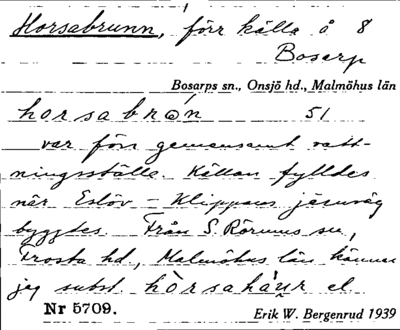 Horsabrunn, förr källa å 8
Bosarp
Bosarps sn., Onsjö hd., Malmöhus län
horsabrøn 51
var förr gemensamt vatt-
ningsställe. Källan fylldes
när Eslöv – Klippans järnväg
byggdes. Från S. Rörums sn,
Frosta hd, Malmöhus län känner
jag subst. hòrsahá el.
Nr 5709. Erik W. Bergenrud 1939